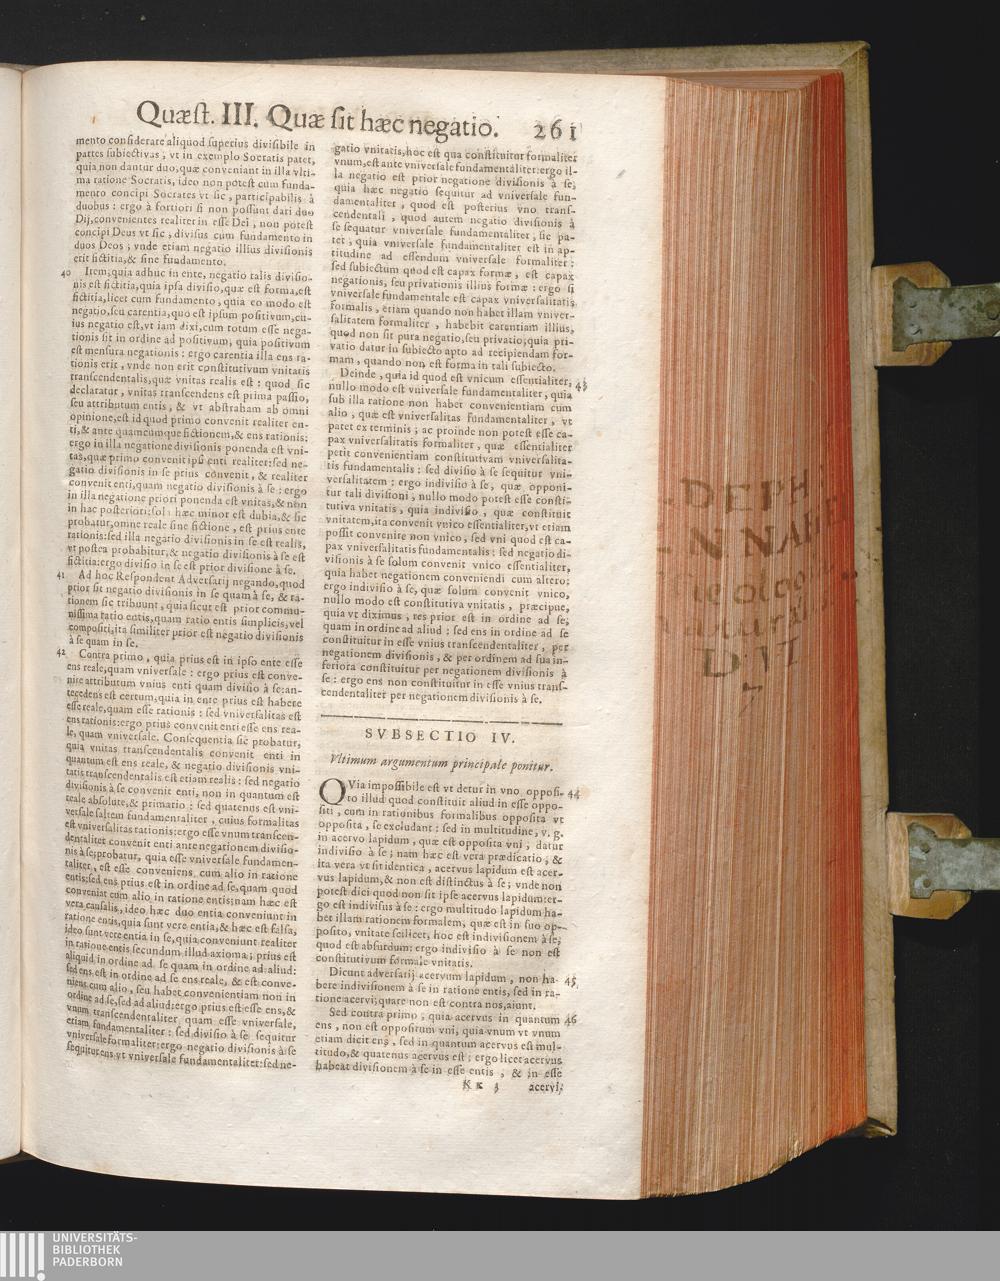 Quæſt. III. Quæ ſit hæc negatio. 261
mento conſiderare aliquod ſuperius diviſibile in
partes ſubiectivas, vt in exemplo Socratis patet,
quia non dantur duo, quæ conveniant in illa vlti-
ma ratione Socratis, ideo non poteſt cum funda-
mento concipi Socrates vt ſic, participabilis à
duobus: ergo à fortiori ſi non poſſunt dari duo
Dij, convenientes realiter in eſſe Dei, non poteſt
concipi Deus vt ſic, diviſus cum fundamento in
duos Deos; vnde etiam negatio illius diviſionis
erit fictitia, & ſine fundamento.
40 Item, quia adhuc in ente, negatio talis diviſio-
nis eſt fictitia, quia ipſa diviſio, quæ eſt forma, eſt
fictitia, licet cum fundamento, quia eo modo eſt
negatio, ſeu carentia, quo eſt ipſum poſitivum, cu-
ius negatio eſt, vt iam dixi, cum totum eſſe nega-
tionis ſit in ordine ad poſitivum, quia poſitivum
eſt menſura negationis: ergo carentia illa ens ra-
tionis erit, vnde non erit conſtitutivum vnitatis
tranſcendentalis, quæ vnitas realis eſt: quod ſic
declaratur, vnitas tranſcendens eſt prima paſſio,
ſeu attributum entis, & vt abſtraham ab omni
opinione, eſt id quod primo convenit realiter en-
ti, & ante quamcumque fictionem, & ens rationis:
ergo in illa negatione diviſionis ponenda eſt vni-
tas, quæ primo convenit ipſi enti realiter: ſed ne-
gatio diviſionis in ſe prius convenit, & realiter
convenit enti, quam negatio diviſionis à ſe: ergo
in illa negatione priori ponenda eſt vnitas, & non
in hac poſteriori: ſol: hæc minor eſt dubia, & ſic
probatur, omne reale ſine fictione, eſt prius ente
rationis: ſed illa negatio diviſionis in ſe eſt realis,
vt poſtea probabitur, & negatio diviſionis à ſe eſt
fictitia: ergo diviſio in ſe eſt prior diviſione à ſe.
41 Ad hoc Reſpondent Adverſarij negando, quod
prior ſit negatio diviſionis in ſe quam à ſe, & ra-
tionem ſic tribuunt, quia ſicut eſt prior commu-
niſſima ratio entis, quam ratio entis ſimplicis, vel
compoſiti, ita ſimiliter prior eſt negatio diviſionis
à ſe quam in ſe.
42 Contra primo, quia prius eſt in ipſo ente eſſe
ens reale, quam vniverſale: ergo prius eſt conve-
nire attributum vnius enti quam diviſio à ſe: an-
tecedens eſt certum, quia in ente prius eſt habere
eſſe reale, quam eſſe rationis: ſed vniverſalitas eſt
ens rationis: ergo prius convenit enti eſſe ens rea-
le, quam vniverſale. Conſequentia ſic probatur,
quia vnitas tranſcendentalis convenit enti in
quantum eſt ens reale, & negatio diviſionis vni-
tatis tranſcendentalis eſt etiam realis: ſed negatio
diviſionis à ſe convenit enti, non in quantum eſt
reale abſolute, & primatio: ſed quatenus eſt vni-
verſale ſaltem fundamentaliter, cuius formalitas
eſt vniverſalitas rationis: ergo eſſe vnum tranſcen-
dentaliter convenit enti ante negationem diviſio-
nis à ſe; probatur, quia eſſe vniverſale fundamen-
taliter, eſt eſſe conveniens cum alio in ratione
entis: ſed ens prius eſt in ordine ad ſe, quam quod
conveniat cum alio in ratione entis: nam hæc eſt
vera cauſalis, ideo hæc duo entia conveniunt in
ratione entis, quia ſunt vere entia, & hæc eſt falſa,
ideo ſunt vere entia in ſe, quia conveniunt realiter
in ratione entis ſecundum illud axioma; prius eſt
aliquid in ordine ad ſe quam in ordine ad aliud:
ſed ens eſt in ordine ad ſe ens reale, & eſt conve-
niens cum alio, ſeu habet convenientiam non in
ordine ad ſe, ſed ad aliud: ergo prius eſt eſſe ens, &
vnum tranſcendentaliter quam eſſe vniverſale,
etiam fundamentaliter: ſed diviſio à ſe ſequitur
vniverſale formaliter: ergo negatio diviſionis à ſe
ſequitur ens vt vniverſale fundamentaliter: ſed ne-
gatio vnitatis, hoc eſt qua conſtituitur formaliter
vnum, eſt ante vniverſale fundamentaliter: ergo il-
la negatio eſt prior negatione diviſionis à ſe;
quia hæc negatio ſequitur ad vniverſale fun-
damentaliter, quod eſt poſterius vno tranſ-
cendentali, quod autem negatio diviſionis à
ſe ſequatur vniverſale fundamentaliter, ſic pa-
tet, quia vniverſale fundamentaliter eſt in ap-
titudine ad eſſendum vniverſale formaliter:
ſed ſubiectum quod eſt capax formæ, eſt capax
negationis, ſeu privationis illius formæ: ergo ſi
vniverſale fundamentale eſt capax vniverſalitatis
formalis, etiam quando non habet illam vniver-
ſalitatem formaliter, habebit carentiam illius,
quod non ſit pura negatio, ſeu privatio; quia pri-
vatio datur in ſubiecto apto ad recipiendam for-
mam, quando non eſt forma in tali ſubiecto.
Deinde, quia id quod eſt vnicum eſſentialiter, 43
nullo modo eſt vniverſale fundamentaliter, quia
ſub illa ratione non habet convenientiam cum
alio, quæ eſt vniverſalitas fundamentaliter, vt
patet ex terminis; ac proinde non poteſt eſſe ca-
pax vniverſalitatis formaliter, quæ eſſentialiter
petit convenientiam conſtitutivam vniverſalita-
tis fundamentalis: ſed diviſio à ſe ſequitur vni-
verſalitatem: ergo indiviſio à ſe, quæ opponi-
tur tali diviſioni, nullo modo poteſt eſſe conſti-
tutiva vnitatis, quia indiviſio, quæ conſtituit
vnitatem, ita convenit vnico eſſentialiter, vt etiam
poſſit convenire non vnico, ſed vni quod eſt ca-
pax vniverſalitatis fundamentalis: ſed negatio di-
viſionis à ſe ſolum convenit vnico eſſentialiter,
quia habet negationem conveniendi cum altero:
ergo indiviſio à ſe, quæ ſolum convenit vnico,
nullo modo eſt conſtitutiva vnitatis, præcipue,
quia vt diximus, res prior eſt in ordine ad ſe,
quam in ordine ad aliud: ſed ens in ordine ad ſe
conſtituitur in eſſe vnius tranſcendentaliter, per
negationem diviſionis, & per ordinem ad ſua in-
feriora conſtituitur per negationem diviſionis à
ſe: ergo ens non conſtituitur in eſſe vnius tranſ-
cendentaliter per negationem diviſionis à ſe.
SVBSECTIO IV.
Vltimum argumentum principale ponitur.
QVia impoſſibile eſt vt detur in vno oppoſi- 44
to illud quod conſtituit aliud in eſſe oppo-
ſiti, cum in rationibus formalibus oppoſita vt
oppoſita, ſe excludant: ſed in multitudine, v. g.
in acervo lapidum, quæ eſt oppoſita vni, datur
indiviſio à ſe; nam hæc eſt vera prædicatio, &
ita vera vt ſit identica, acervus lapidum eſt acer-
vus lapidum, & non eſt diſtinctus à ſe; vnde non
poteſt dici quod non ſit ipſe acervus lapidum: er-
go eſt indiviſus à ſe: ergo multitudo lapidum ha-
bet illam rationem formalem, quæ eſt in ſuo op-
poſito, vnitate ſcilicet, hoc eſt indiviſionem à ſe,
quod eſt abſurdum: ergo indiviſio à ſe non eſt
conſtitutivum formale vnitatis.
Dicunt adverſarij acervum lapidum, non ha- 45
bere indiviſionem à ſe in ratione entis, ſed in ra-
tione acervi; quare non eſt contra nos, aiunt.
Sed contra primo; quia acervus in quantum 46
ens, non eſt oppoſitum vni, quia vnum vt vnum
etiam dicit ens, ſed in quantum acervus eſt mul-
titudo, & quatenus acervus eſt; ergo licet acervus
habeat diviſionem à ſe in eſſe entis, & in eſſe
Kk 3 acervi,
DEPH
NNARE
D. VI
UNIVERSITÄTS-
BIBLIOTHEK
PADERBORN